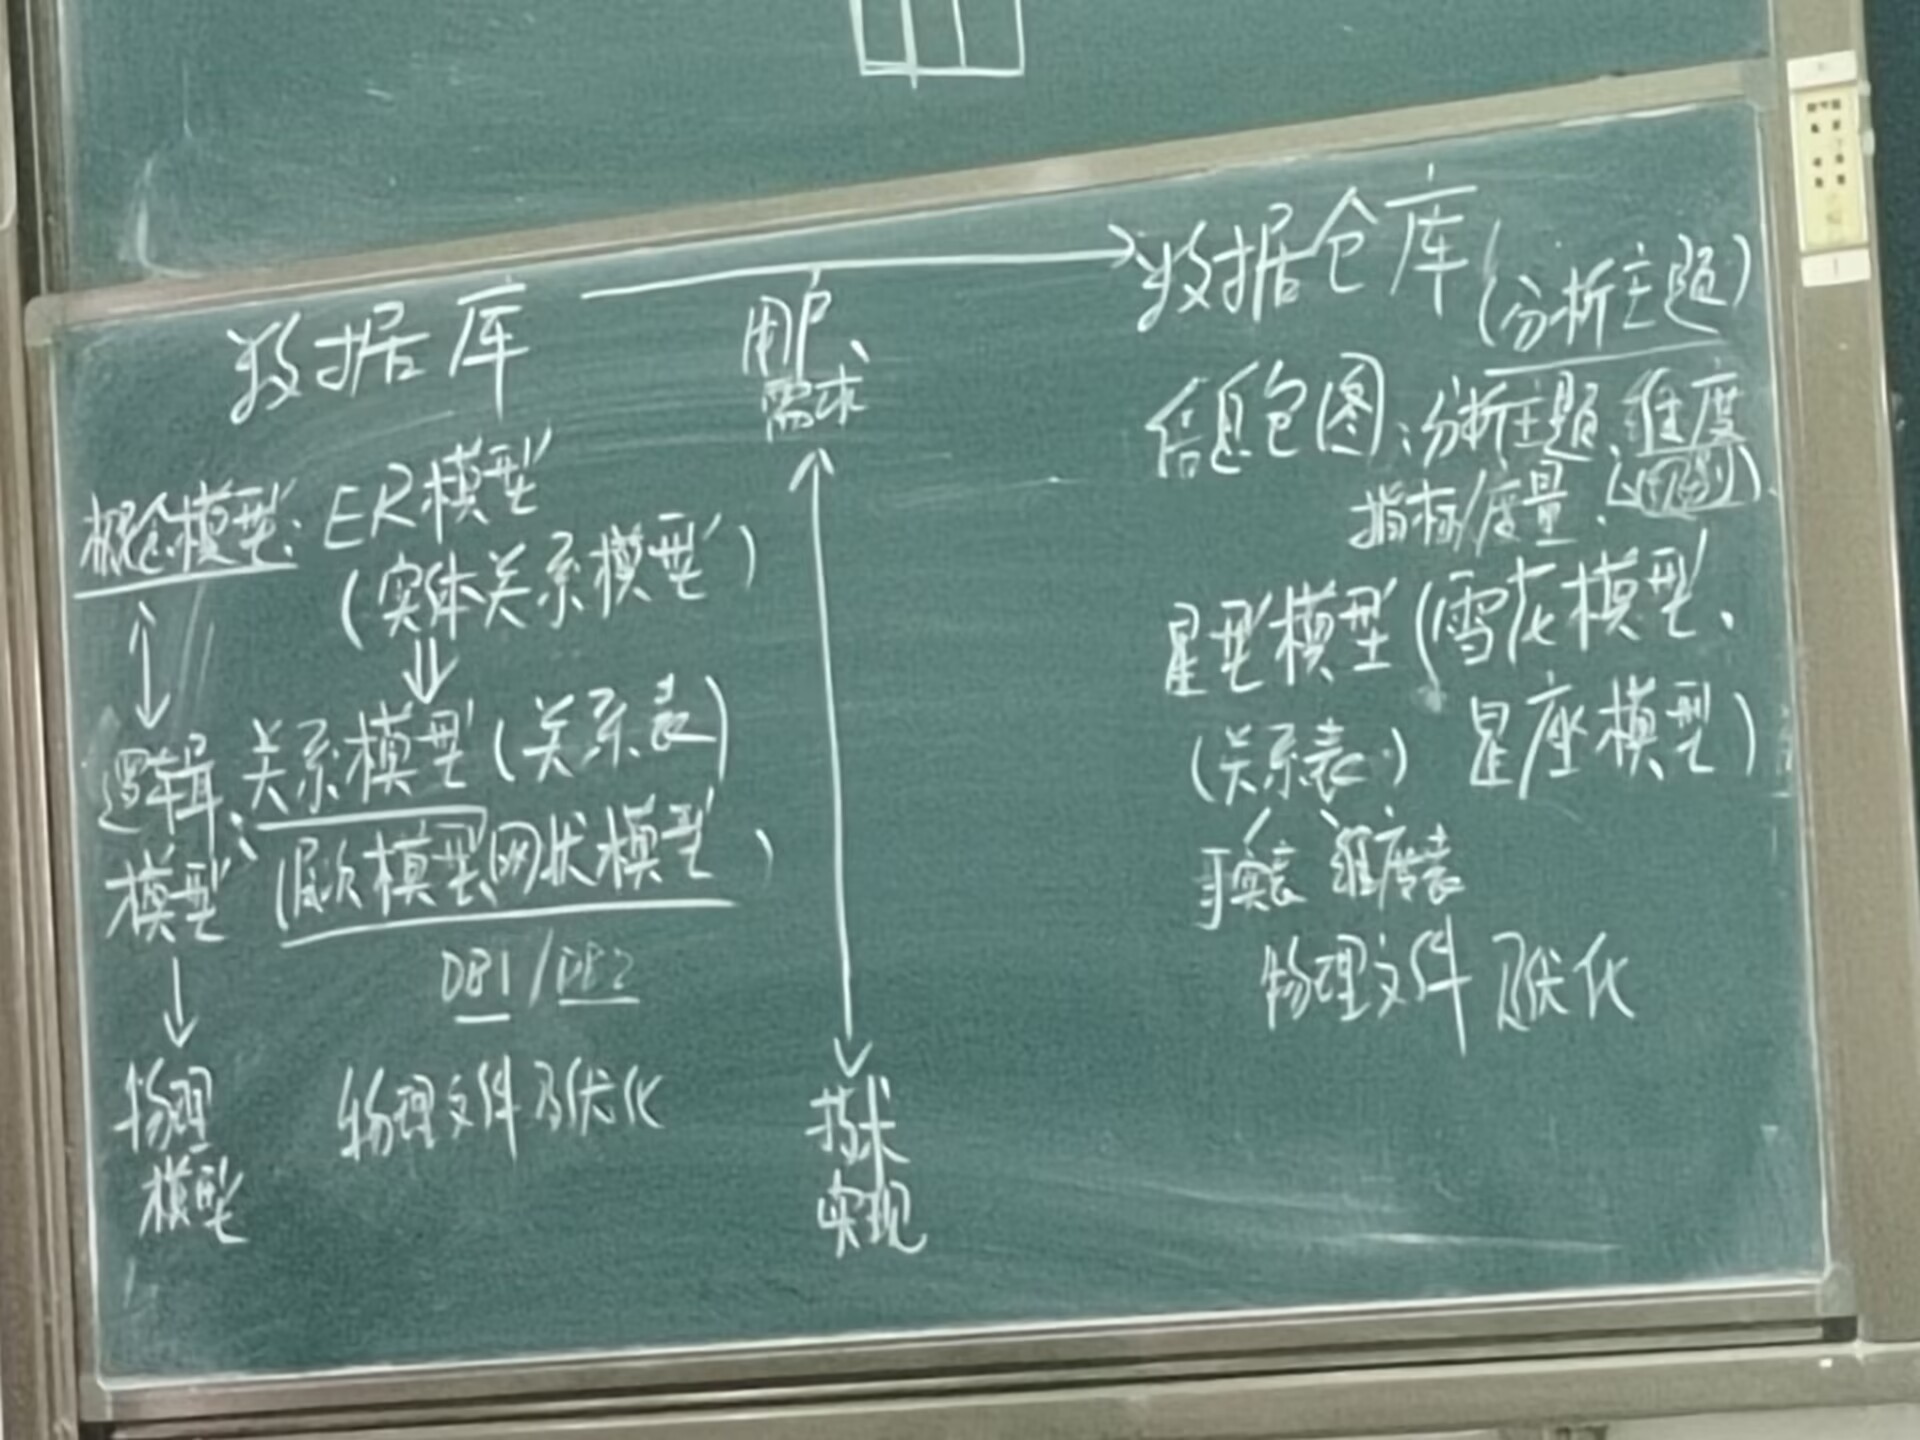 数据库
用户
需求
数据仓库
(分析主题)
概念模型: ER模型
(实体关系模型)
信息包图:分析主题、维度
指标/度量、
逻辑
模型: 关系模型(关系表)
(层次模型、网状模型、
DB1/DB2
星型模型(雪花模型、
星座模型)
(关系表)
事实表 维度表
物理
模型
物理文件及优化
技术
实现
物理文件及优化